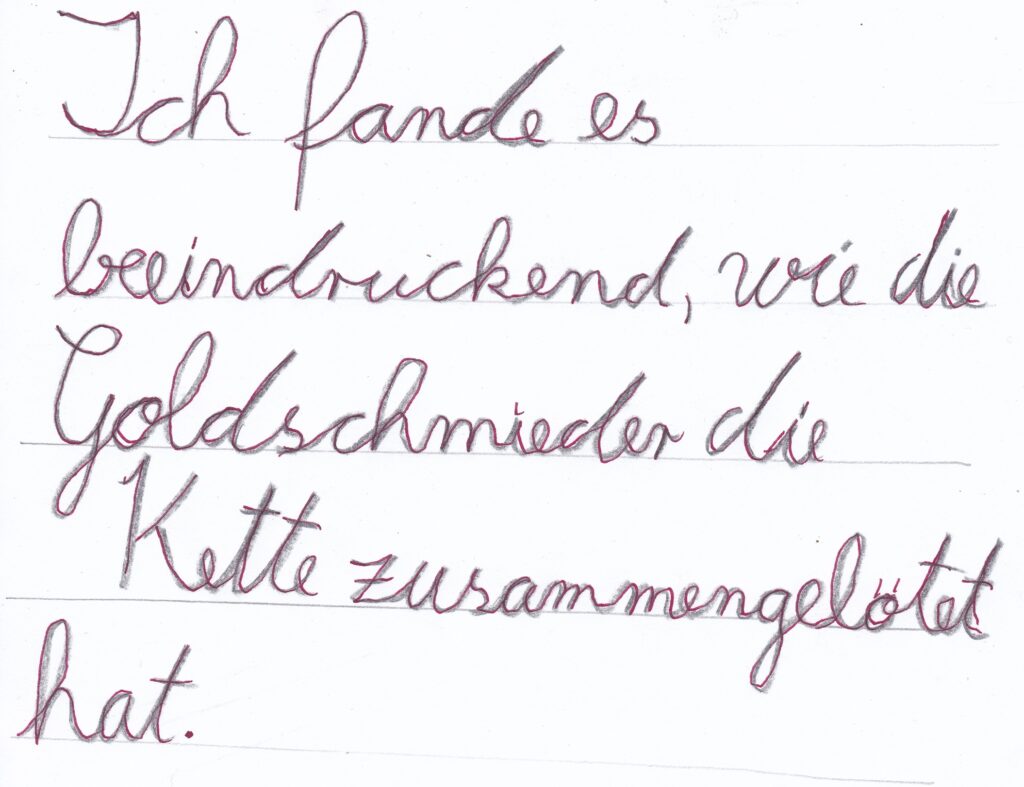 Ich fande es
beeindruckend, wie die
Goldschmieder die
Kette zusammengelötet
hat.